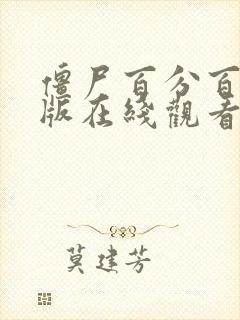 僵尸百分百
版在綫觀看
莫建芳